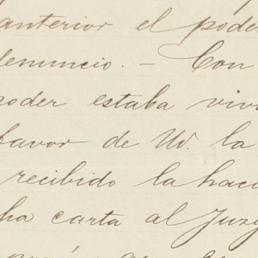 anterior el poder
denuncio. — Con
poder estaba vi
favor de Ud. la
recibido la hac
ha carta al Juzg